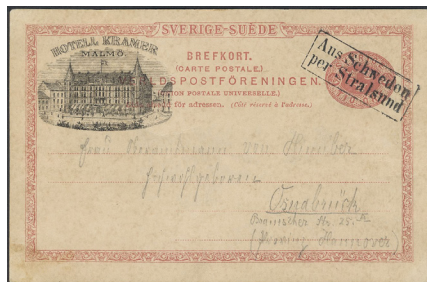 SVERIGE-SUÈDE
HOTELL KRAMER
MALMÖ
BREFKORT.
(CARTE POSTALE.)
LDSPOSTFÖRENINGEN.
ION POSTALE UNIVERSELLE.)
för adressen. (Côté réservé à l'adresse.)
Aus Schweden
per Stralsund
Frau
von
Hochwohlgeboren
Osnabrück
Str. 25
(Provinz Hannover)